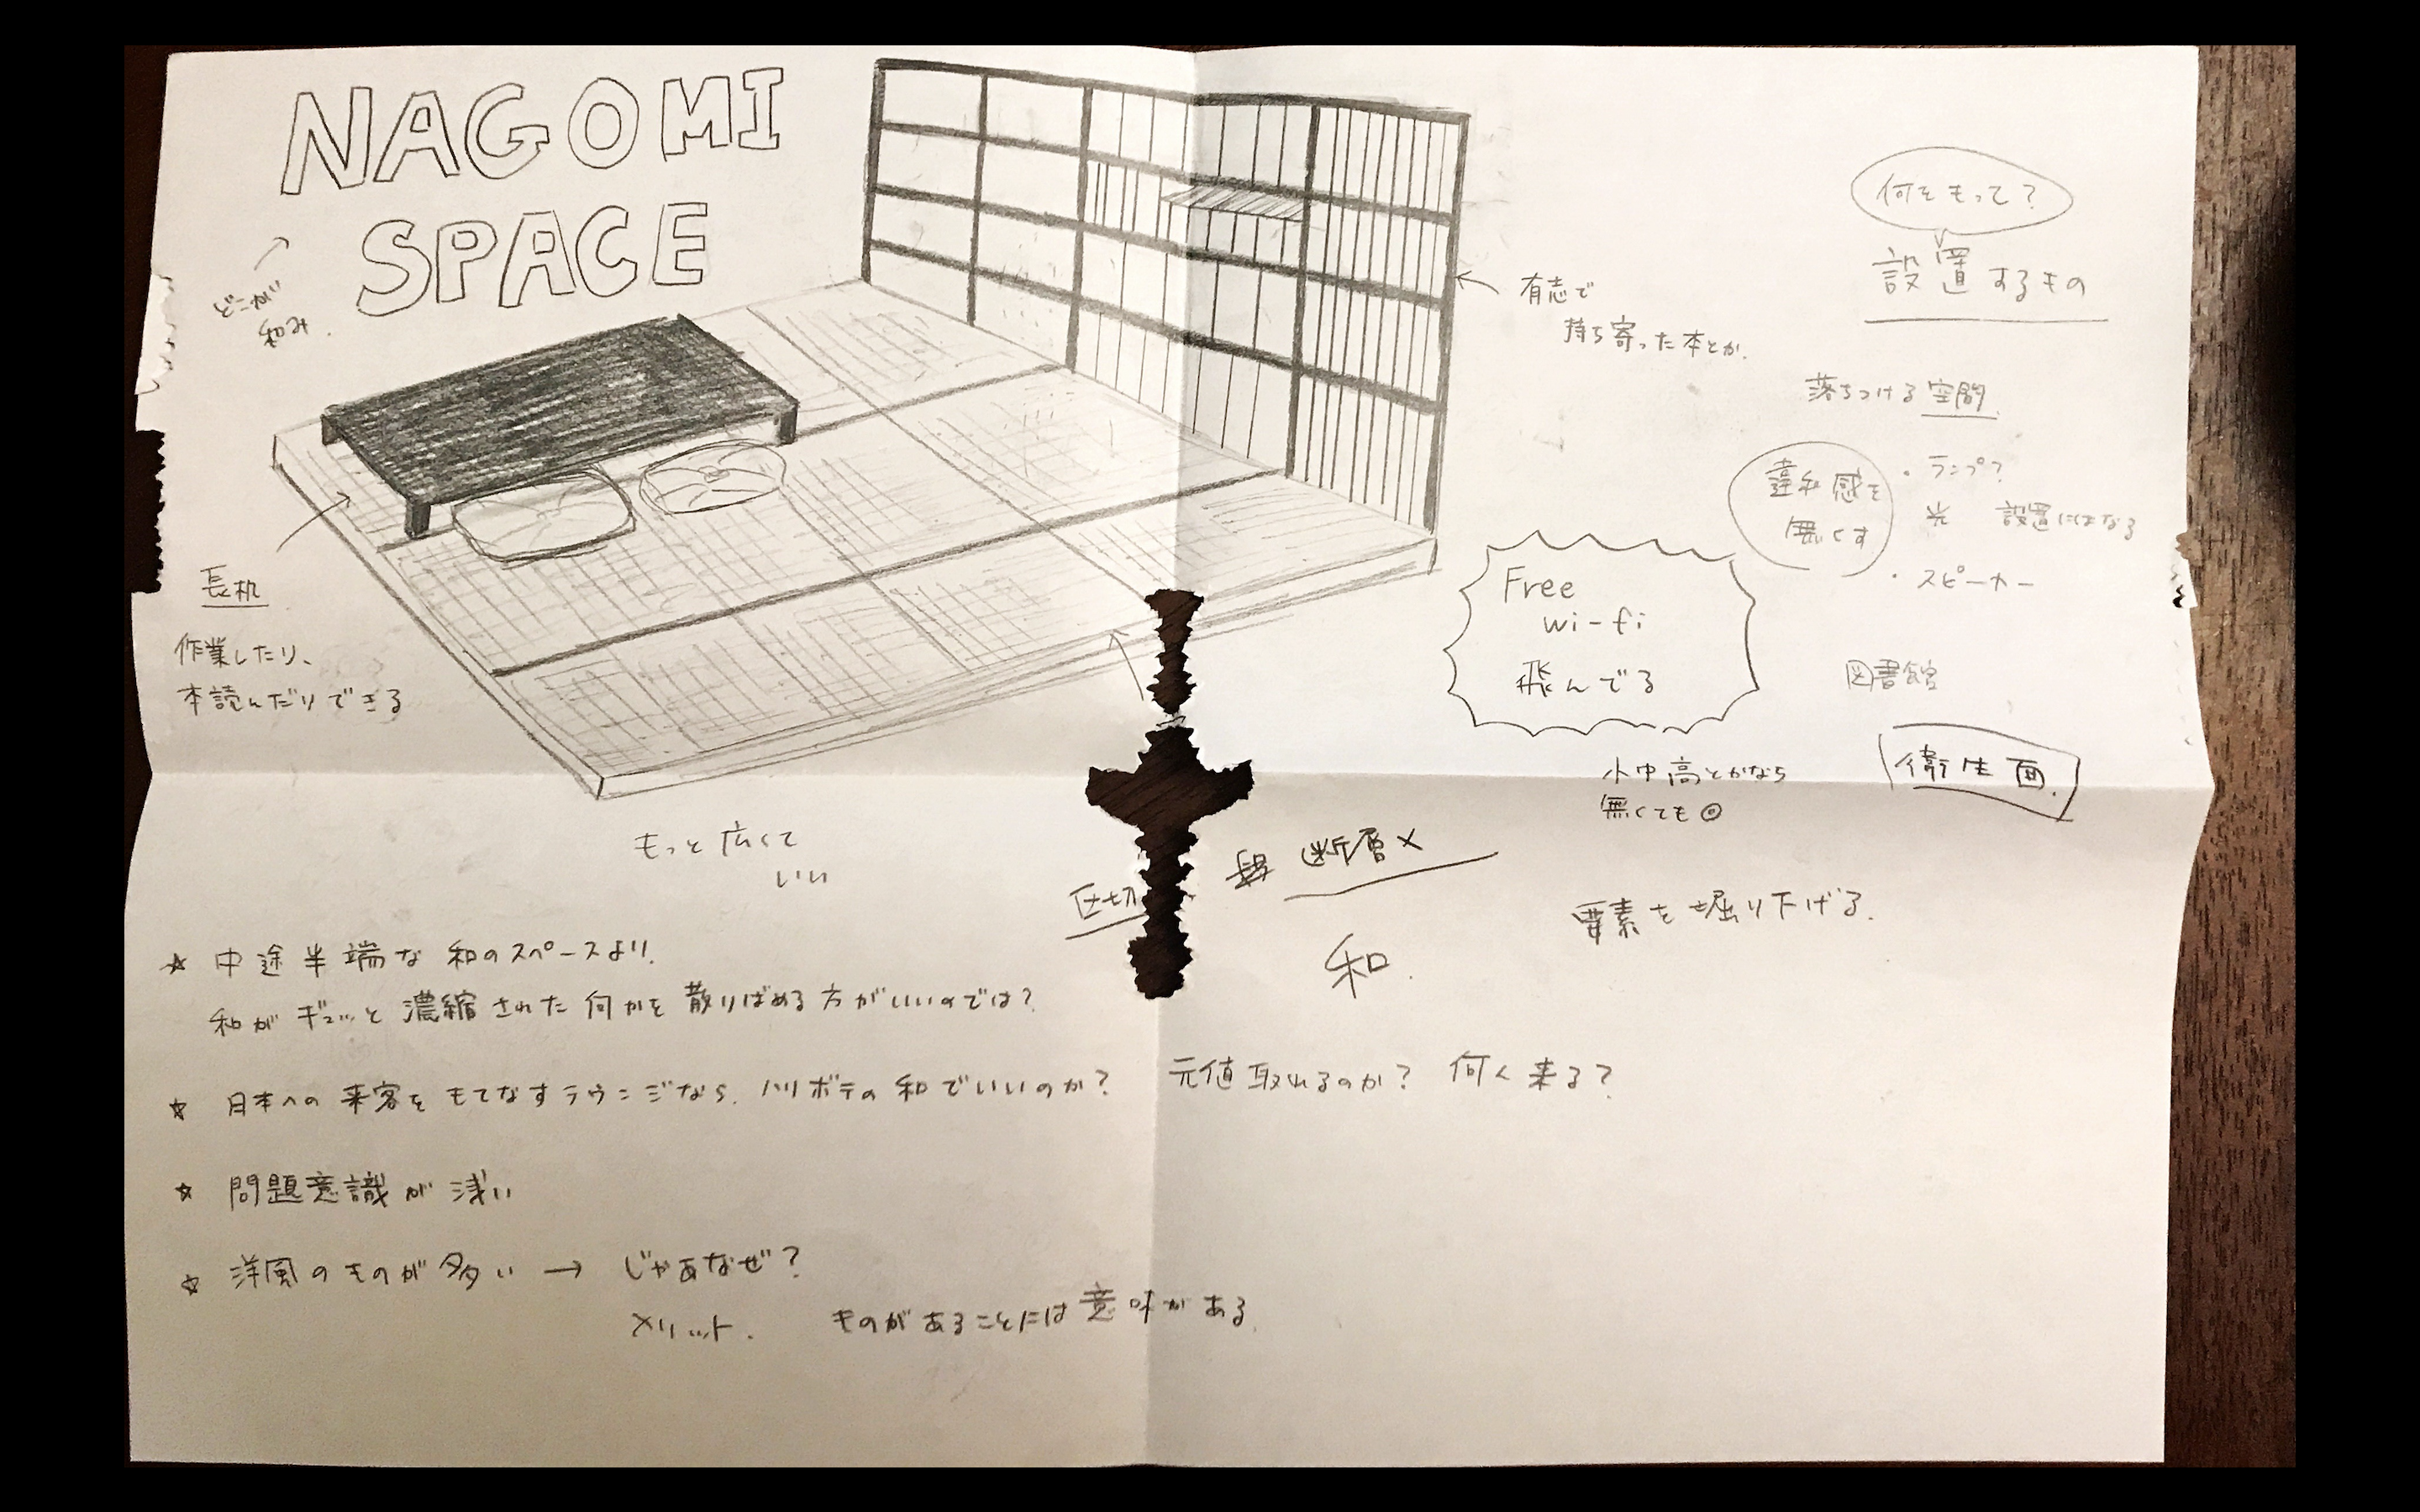 NAGOMI
SPACE
どこがい
和み.
有志で
持ち寄った本とか.
何をもって?
設置するもの
落ちつける空間
違和感を
無くす
・ランプ?
光 設置にはなる
・スピーカー
Free
wi-fi
飛んでる
図書館
衛生面.
小中高とかなら
無くても◎
長机
作業したり、
本読んだりできる
もっと広くて
いい
仕切
断層×
和.
要素を掘り下げる.
☆ 中途半端な和のスペースより.
和がギュッと濃縮された何かを散りばめる方がいいのでは?
☆ 日本への来客をもてなすラウンジなら. ハリボテの和でいいのか? 元値取れるのか? 何人来る?
☆ 問題意識が浅い
☆ 洋風のものが多い → じゃあなぜ?
メリット. ものがあることには意味がある.